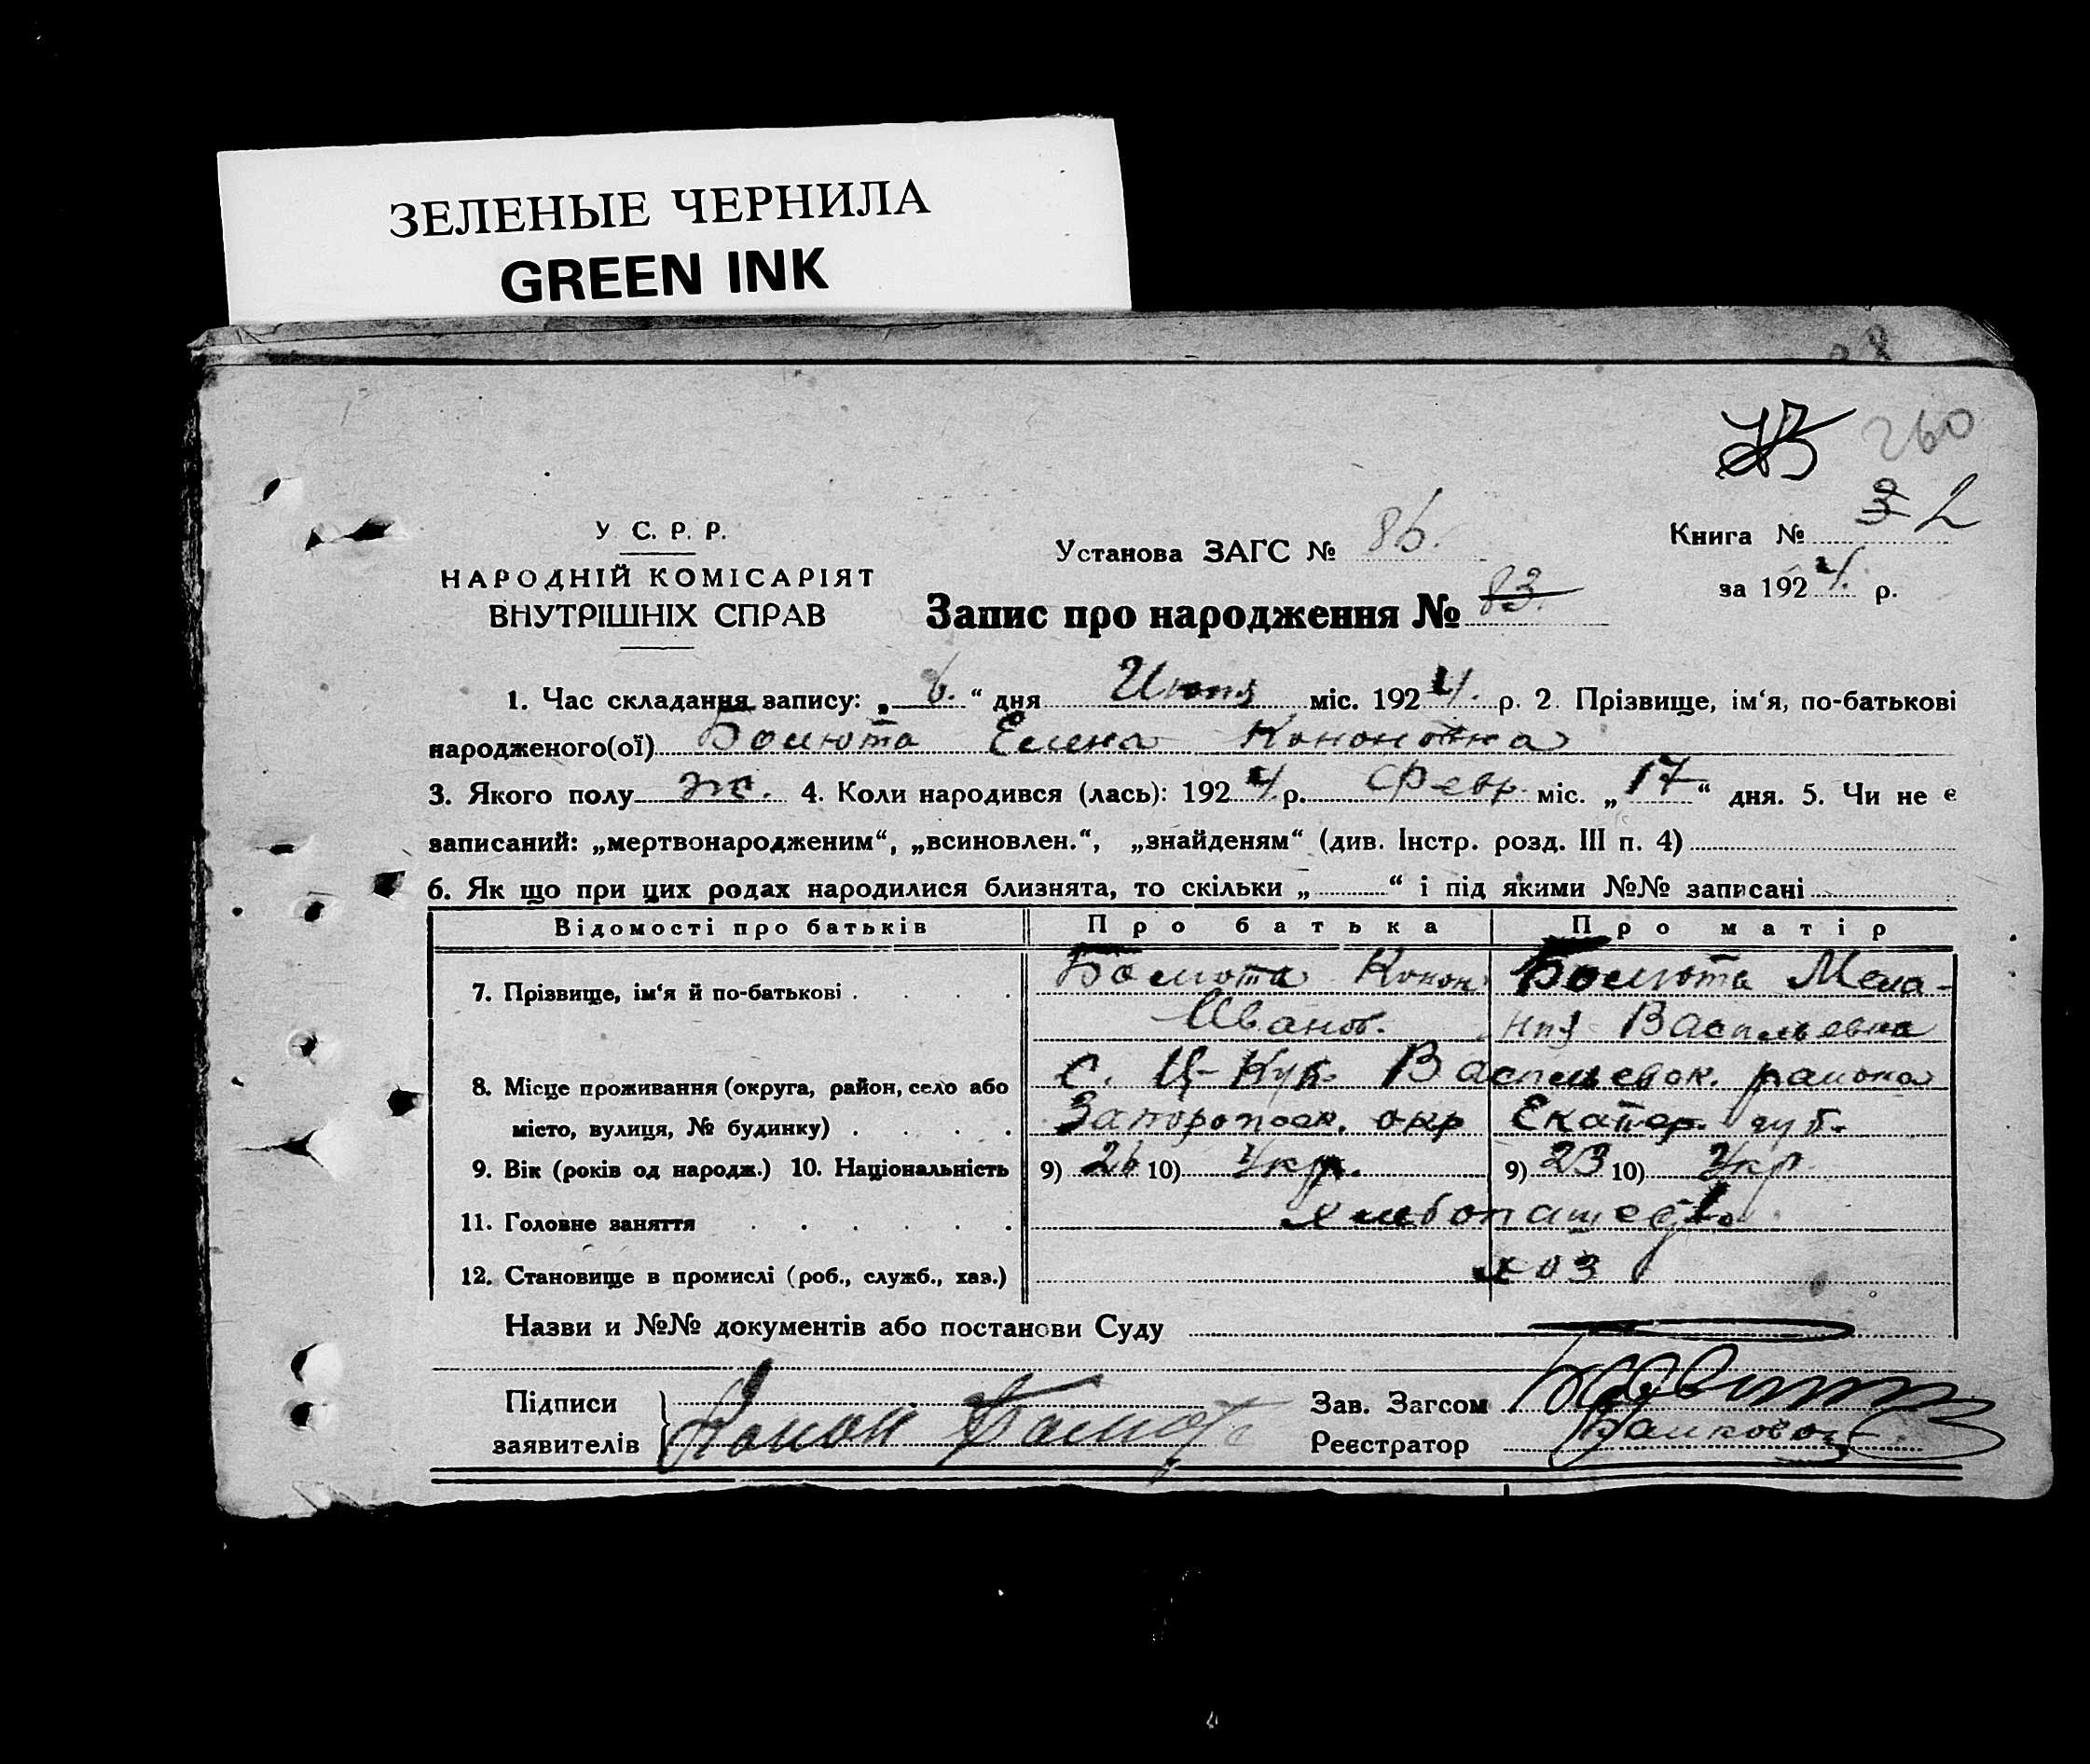 ЗЕЛЕНЫЕ ЧЕРНИЛА
GREEN INK
260
У. С. Р. Р.
НАРОДНІЙ КОМІСАРІЯТ
ВНУТРІШНІХ СПРАВ
Установа ЗАГС № 86.
Книга № 3 2
за 1924. р.
Запис про народження № 83.
1. Час складання запису: „ 6. “ дня міс. 1924. р. 2. Прізвище, ім‘я, по-батькові
народженого(ої) Болюта Елена Кононовна
3. Якого полу ж. 4. Коли народився (лась): 1924 р. Февр. міс. „ 17 “ дня. 5. Чи не є
записаний: „мертвонародженим“, „всиновлен.“, „знайденям“ (див. Інстр. розд. III п. 4)
6. Як що при цих родах народилися близнята, то скільки „ “ і під якими №№ записані
Відомості про батьків Про батька Про матір
7. Прізвище, ім‘я й по-батькові . . . . Болюта Конон Болюта Мела-
Иванов. ния Васильевна
8. Місце проживання (округа, район, село або С. Ц-Кук. Васильевск. района
місто, вулиця, № будинку) . . . . Запорожск. окр Екатер. губ.
9. Вік (років од народж.) 10. Національність 9) 26 10) Укр. 9) 23 10) Укр.
11. Головне заняття . . . . . . хлебопашество
12. Становище в промислі (роб., служб., хаз.) хоз
Назви и №№ документів або постанови Суду
Підписи Зав. Загсом
заявителів Конон Болюта Реєстратор